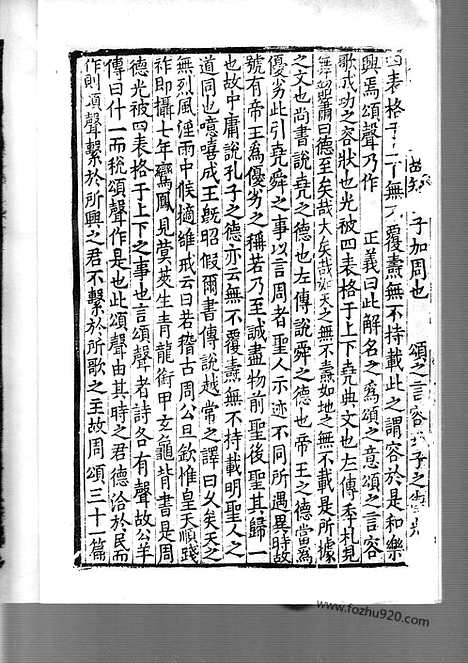 子加周也　頌之言容子之
四表格于下無覆燾無不持載此之謂容於是和樂
興焉頌聲乃作　正義曰此解名之爲頌之意頌之言容
歌成功之容狀也光被四表格于上下堯典文也左傳季札見
舞韶箾曰德至矣哉大矣哉如天之無不燾如地之無不載是所據
之文也尚書說堯之德也左傳說舜之德也帝王之德當為
優劣此引堯舜之事以言周者聖人示迹不同所遇異時故
號有帝王為優劣之稱若乃至誠盡物前聖後聖其歸一
也故中庸說孔子之德亦云無不覆燾無不持載明聖人之
道同也噫嘻成王既昭假爾書傳說越常之譯曰久矣天之
無烈風淫雨中候擿雒戒云曰若稽古周公旦欽惟皇天順踐
祚即攝七年鸞鳳見蓂莢生青龍銜甲玄龜背書是周
德光被四表格于上下之事也言頌聲者詩各有聲故公羊
傳曰什一而稅頌聲作是也此頌聲由其時之君德洽於民而
作則頌聲繫於所興之君不繫於所歌之主故周頌三十一篇
www.fozhu920.com